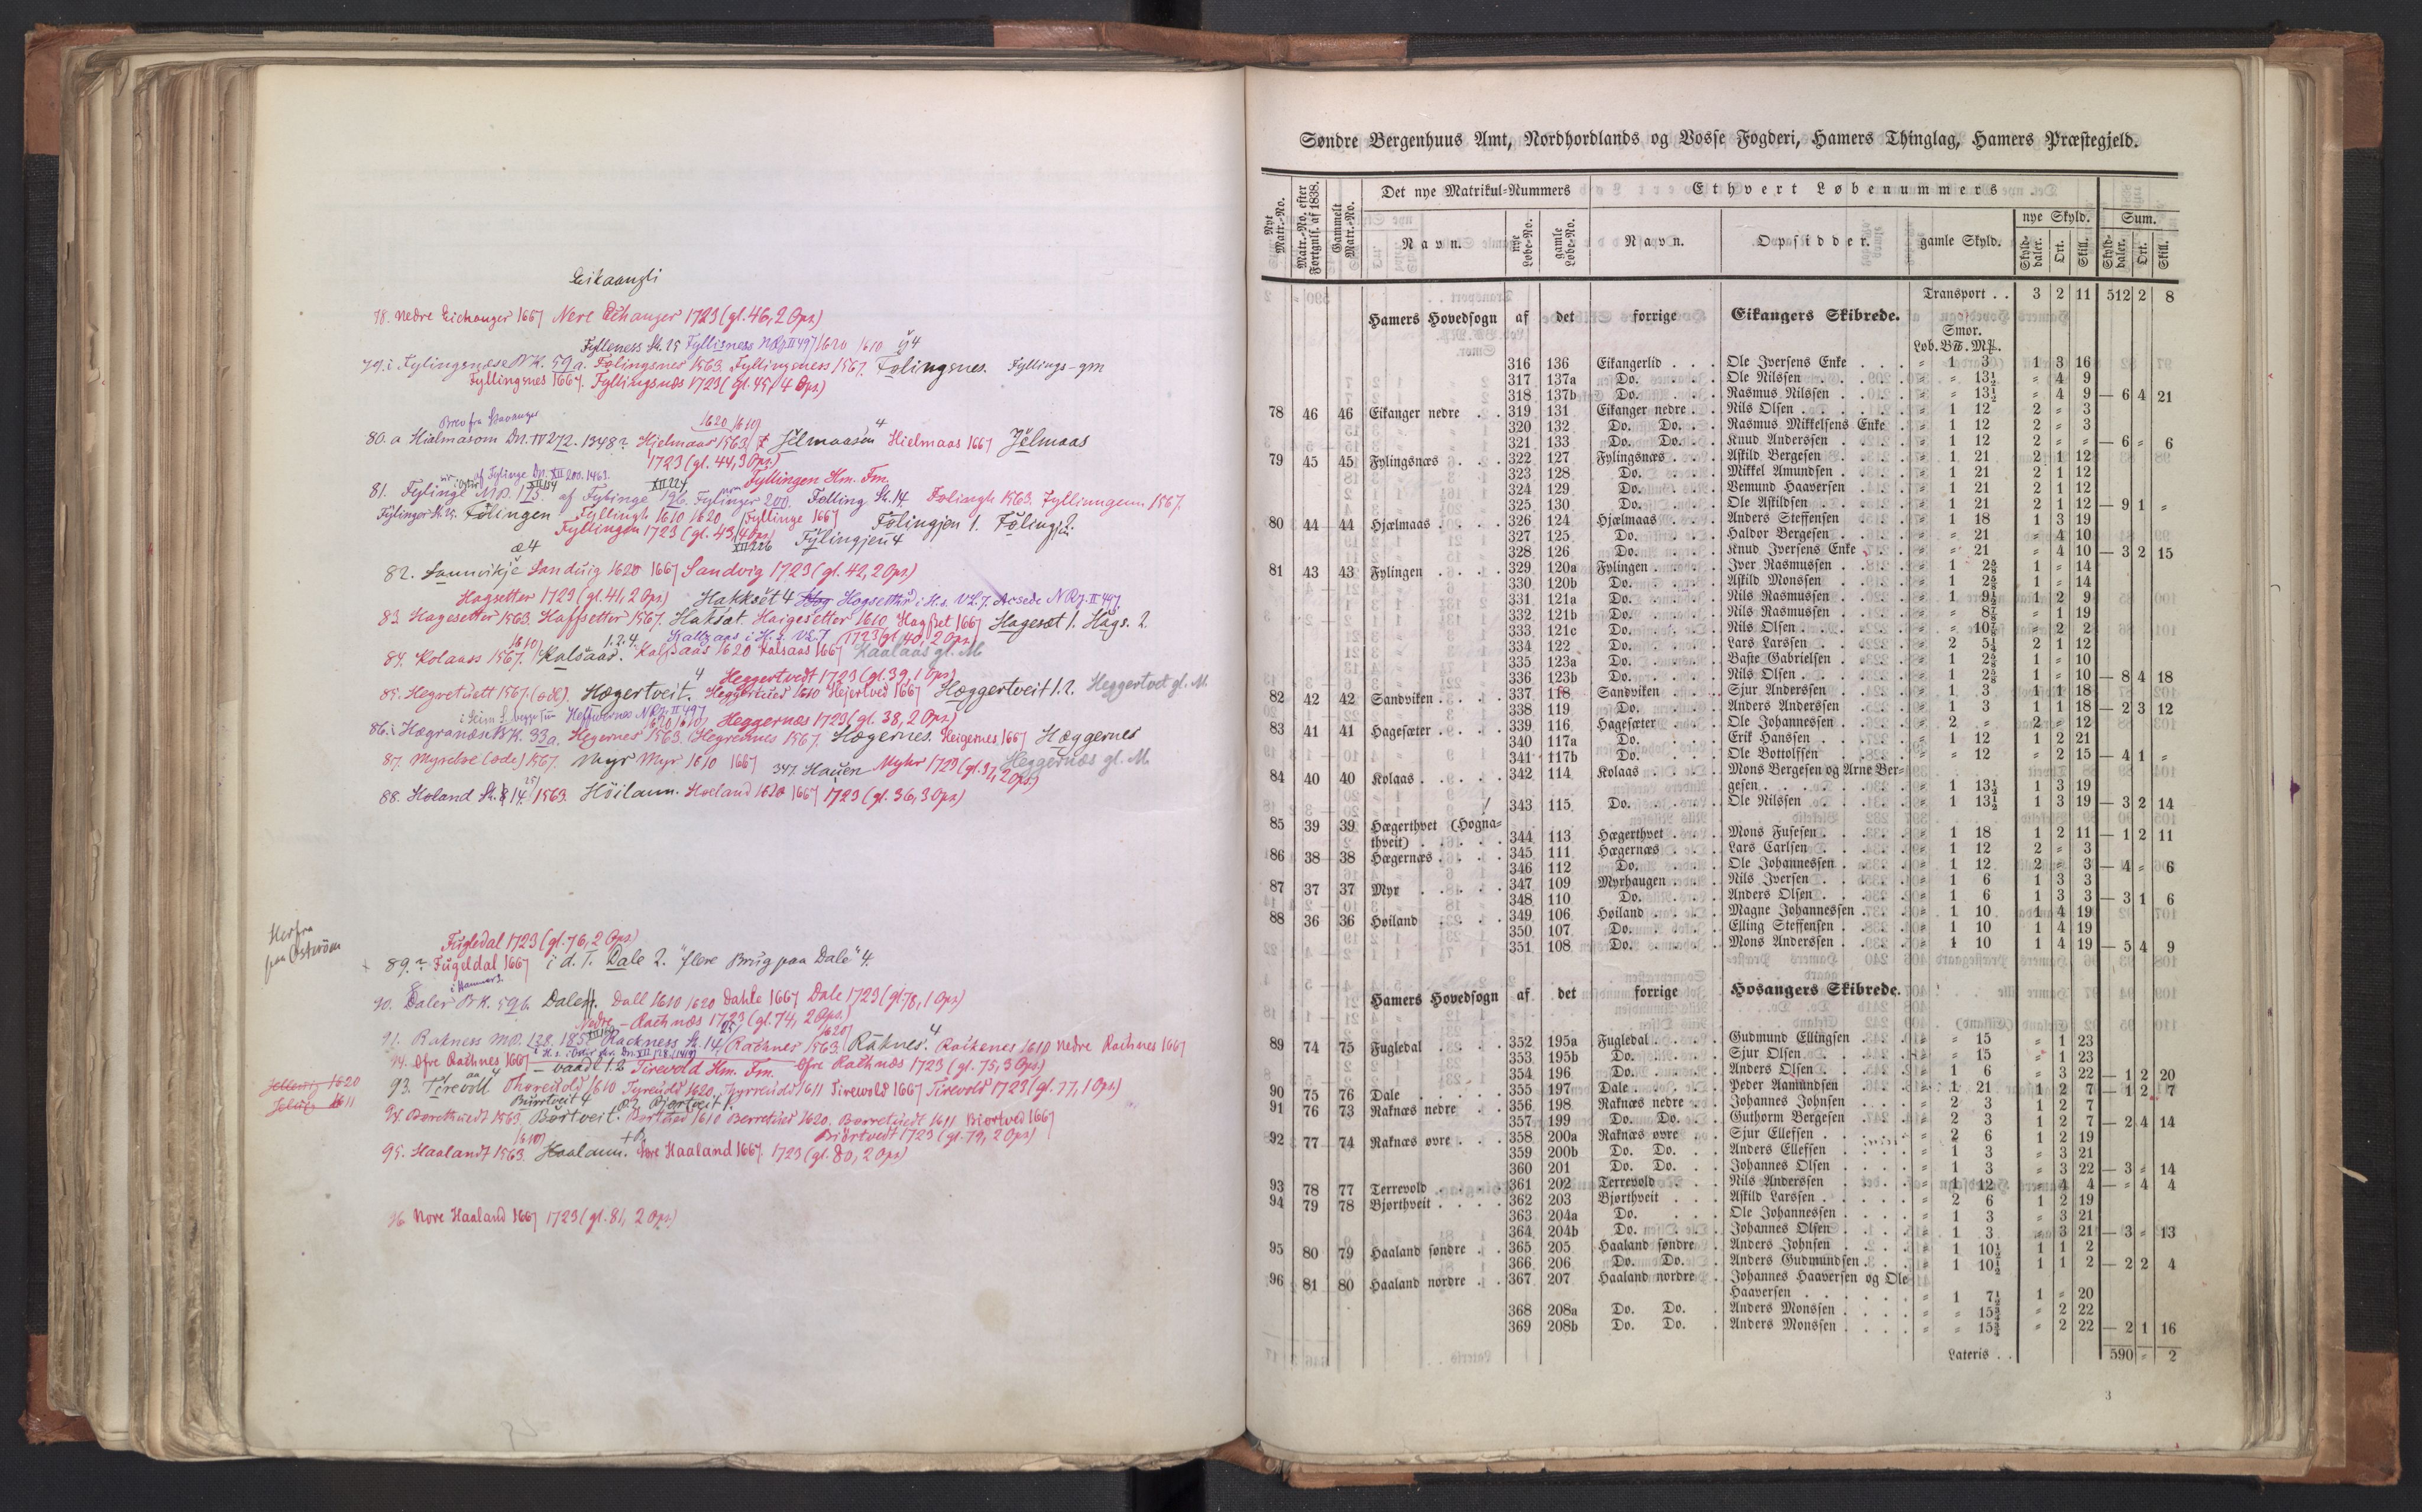 Eikaangli
78. Nedre Eichanger 1667 Nere Eichanger 1723 (gl. 46, 2 Ops.)
Fylleness St. 25 Fyllisness NRJ II 497 1620 1610 ij4
79. i Fylingsnese BK. 59a. Folingsnes 1563. Fyllingsness 1567. Følingsnes. Fyllings-gm
Fyllingsnes 1667. Fyllingsnæs 1723 (gl. 45, 4 Ops.)
Brev fra Stavanger
1620 1610
80. a Hialmasom Dn. IV 272. 1348? Hjelmaas 1563 Jelmaasen 4 Hielmaas 1667 Jelmaas
1723 (gl. 44, 3 Ops.)
af Fylinge Dn. XII 200. 1463.
Fyllingen Hm. Fm.
81. Fylinge MP. 175. af Fylinge 196. Fylinger 200. Følling St. 14. Folingh 1563. Fyllinngenn 1567.
Fylinger St. 25. Følingen Fyllingh 1610 1620 Fyllinge 1667 Følingjen 1. Følingj. 2.
Fyllingen 1723 (gl. 43, 4 Ops.) XII 226 Fylingjen 4
æ 4
82. Sannvikje Sanduig 1620 1667 Sandvig 1723 (gl. 42, 2 Ops.)
Hagsetter 1723 (gl. 41, 2 Ops.) Hakksêt 4 Hogsetther i H.s. VL. 7. Acsede NRJ. II 497
83. Hagesetter 1563. Haffsetter 1567. Haksæt. Haigesetter 1610 Hagset 1667 Hagesæt 1. Hags. 2.
1610 1.2.4. Kaltzaas i H.s. VL. 7 1723 (gl. 40, 2 Ops.)
84. Kolaass 1567. Kalsaas. Kalsaas 1620 Kalsaas 1667 Kaalaas gl. M.
Heggertvedt 1723 (gl. 39, 1 Ops.)
85. Hegretuett 1567. (øde). Hægertveit. Heggertued 1610 Hejertved 1667 Hæggertveit 1.2. Heggertvet gl. M.
NRJ. II 497
1620 1610 Heggernæs 1723 (gl. 38, 2 Ops.)
86. i Hægranæse BK. 33a. Hegernes 1563. Hegrennes 1567. Hægernes. Heigernes 1667 Hæggernes
Heggernæs gl. M.
87. Myrebøe (øde) 1567. Myr Myr 1610 1667 347. Hauen Myhr 1723 (gl. 37, 2 Ops.)
88. Holand St. 14. 25 1563. Höilann. Hoeland 1620 1667 1723 (gl. 36, 3 Ops.)
Herfra paa Osterøen
Fugledal 1723 (gl. 76, 2 Ops.)
89.? Fugeldal 1667 i d. T. Dale 2. "flere Brug paa Dale" 4.
i Hammers.
90. Daler BK. 59b. Dale. Dall 1610 1620 Dahle 1667 Dale 1723 (gl. 78, 1 Ops.)
Nedre-Rachnæs 1723 (gl. 74, 2 Ops.)
91. Rakness MP. 138. 185. Rackness St. 14, 25 Rachnes 1563. Raknes. 4 Raikenes 1610 1620 Nedre Rachnes 1667
Øfre Rachnes 1667 – vaadl 1.2 Tirevold Hm. Fm. Øfre Rachnæs 1723 (gl. 75, 3 Ops.)
1620
93. Tirevoll Thoreuold 1610 Tyreuold 1620. Tyrreuold 1611 Tirevold 1667 Tirevold 1723 (gl. 77, 1 Ops.)
Bürrtveit 4 Bjørtveit 1.
94. Borethuedt 1563. Børtveit. Bortued 1610 Berretued 1620. Borretuedt 1611 Biortved 1667
Biörtvedt 1723 (gl. 79, 2 Ops.)
1610
95. Haalandt 1563. Haalann. Søre Haaland 1667. 1723 (gl. 80, 2 Ops.)
96. Nore Haaland 1667 1723 (gl. 81, 2 Ops.)
Søndre Bergenhuus Amt, Nordhordlands og Vosse Fogderi, Hamers Thinglag, Hamers Præstegjeld.
Nyt Matr.-No. | Matr.-No. efter Fortgnls. af 1838. | Gammelt Matr.-No. | Det nye Matrikul-Nummers | Ethvert Løbenummers
Navn. | nye Løbe-No. | gamle Løbe-No. | Navn. | Opsidder. | gamle Skyld. | nye Skyld. | Sum.
Skylddaler. | Ort. | Skill. | Skylddaler. | Ort. | Skill.
Transport . . 3 2 11 512 2 8
Hamers Hovedsogn af det forrige Eikangers Skibrede.
Smør.
Løb. B℔. M℔.
316 136 Eikangerlid . . . Ole Iversens Enke . . . " 1 3 1 3 16
317 137a Do. Ole Nilssen " " 13½ " 4 9
318 137b Do. Rasmus Nilssen " " 13½ " 4 9 — 6 4 21
78 46 46 Eikanger nedre . . 319 131 Eikanger nedre . . Nils Olsen " 1 12 2 " 3
320 132 Do. Do. Rasmus Mikkelsens Enke " 1 12 2 " 3
321 133 Do. Do. Knud Anderssen " 1 12 2 " " — 6 " 6
79 45 45 Fylingsnæs . . . 322 127 Fylingsnæs . . . Askild Bergesen " 1 21 2 1 12
323 128 Do. Mikkel Amundsen " 1 21 2 1 12
324 129 Do. Vemund Haaversen " 1 21 2 1 12
325 130 Do. Ole Askildsen " 1 21 2 1 12 — 9 1 "
80 44 44 Hjælmaas . . . . 326 124 Hjælmaas . . . Anders Steffensen " 1 18 1 3 19
327 125 Do. Haldor Bergesen " " 21 " 4 10
328 126 Do. Knud Iversens Enke " " 21 " 4 10 — 3 2 15
81 43 43 Fylingen . . . . 329 120a Fylingen . . . Iver Rasmussen " 1 2⅝ 1 " 14
330 120b Do. Askild Monssen " 1 2⅝ 1 " 14
331 121a Do. Nils Rasmussen " 1 9½ 1 2 9
332 121b Do. Nils Rasmussen " " 8⅞ " 1 19
333 121c Do. Nils Olsen " " 10⅞ " 2 2
334 122 Do. Lars Larssen " 2 5¼ 2 1 12
335 123a Do. Baste Gabrielsen " 1 2⅝ 1 " 10
336 123b Do. Nils Olsen " 1 2⅝ 1 " 10 — 8 4 18
82 42 42 Sandviken . . . . 337 118 Sandviken . . . Sjur Anderssen " 1 3 1 1 18
338 119 Do. Anders Anderssen " 1 3 1 1 18 — 2 3 12
83 41 41 Hagesæter . . . . 339 116 Hagesæter . . . Ole Johannessen " 2 " 2 " 12
340 117a Do. Erik Hanssen " 1 12 1 2 21
341 117b Do. Ole Bottolfsen " " 12 " 2 15 — 4 1 "
84 40 40 Kolaas . . . . . 342 114 Kolaas . . . . Mons Bergesen og Arne Ber-
gesen " 1 13½ 1 3 19
343 115 Do. Ole Nilssen " 1 13½ 1 3 19 — 3 2 14
85 39 39 Hægerthvet (Hogna-
thveit) . . . . . 344 113 Hægerthvet . . . Mons Fusesen " 1 18 1 2 11 — 1 2 11
86 38 38 Hægernæs . . . . 345 111 Hægernæs . . . Lars Carlsen " 1 12 2 " 3
346 112 Do. Ole Johannessen " 1 12 2 " 3 — 4 " 6
87 37 37 Myr . . . . . 347 109 Myrhaugen . . . Nils Iversen " 1 6 1 3 3
348 110 Do. Anders Olsen " 1 6 1 3 3 — 3 1 6
88 36 36 Høiland . . . . 349 106 Høiland . . . . Magne Johannessen " 1 10 1 4 19
350 107 Do. Elling Steffensen " 1 10 1 4 19
351 108 Do. Mons Anderssen " 1 10 1 4 19 — 5 4 9
Hamers Hovedsogn af det forrige Hosangers Skibrede.
89 74 75 Fugledal . . . . 352 195a Fugledal . . . . Gudmund Ellingsen " " 15 " 1 23
353 195b Do. Sjur Olsen " " 15 " 1 23
354 196 Do. Anders Olsen " 1 6 " 3 22 — 1 2 20
90 75 76 Dale . . . . . 355 197 Dale . . . . . Peder Aamundsen " 1 21 1 2 7 — 1 2 7
91 76 73 Raknæs nedre . . 356 198 Raknæs nedre . . Johannes Johnsen " 2 3 1 2 7
357 199 Do. Do. Guthorm Bergesen " 2 3 1 2 7 — 2 4 14
92 77 74 Raknæs øvre . . . 358 200a Raknæs øvre . . Sjur Ellefsen " 2 6 1 2 19
359 200b Do. Do. Anders Ellefsen " 1 3 " 3 21
360 201 Do. Do. Johannes Olsen " 1 3 " 3 22 — 3 " 14
93 78 77 Terrevold . . . . 361 202 Terrevold . . . Nils Anderssen " 1 12 " 4 4 — " 4 4
94 79 78 Bjørthveit . . . . 362 203 Bjørthveit . . . Askild Larssen " 2 6 1 2 19
363 204a Do. Ole Johannessen " 1 3 " 3 21
364 204b Do. Johannes Olsen " 1 3 " 3 21 — 3 " 13
95 80 79 Haaland søndre . . 365 205 Haaland søndre . Anders Johnsen " 1 10½ 1 1 2
366 206 Do. Do. Anders Gudmundsen " 1 10½ 1 1 2 — 2 2 4
96 81 80 Haaland nordre . . 367 207 Haaland nordre . Johannes Haaversen og Ole
Haaversen " 1 7½ 1 " 20
368 208a Do. Do. Anders Monssen " " 15¾ " 2 22
369 208b Do. Do. Anders Monssen " " 15¾ " 2 22 — 2 1 16
Lateris . . 590 " 2
3